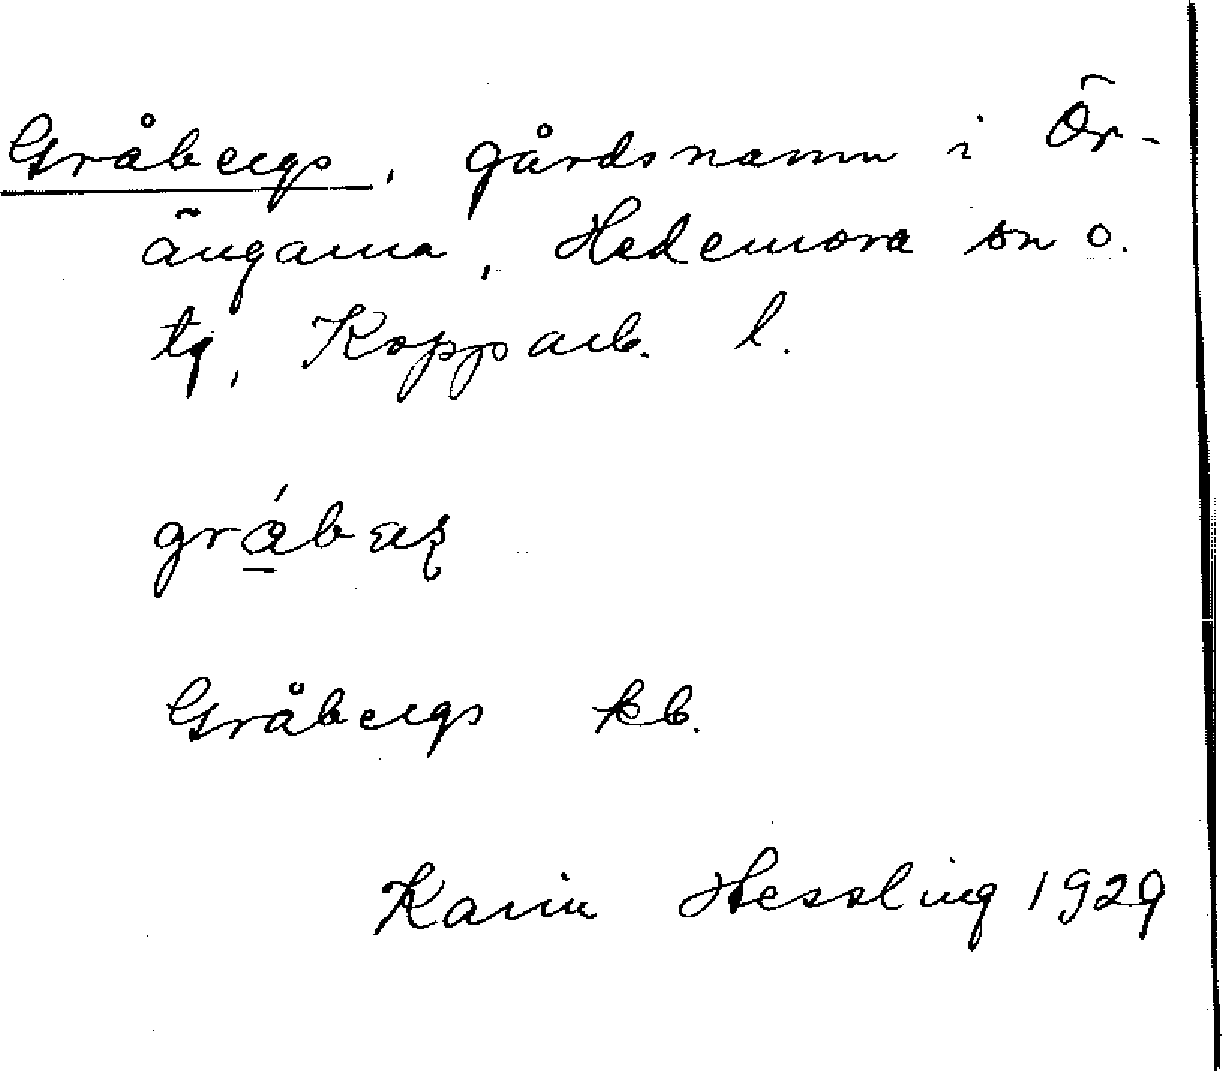 Gråbergs, gårdsnamn i Ör-
ängarna, Hedemora sn o.
tg, Kopparb. l.
Gråbergs kb.
Karin Hessling 1929